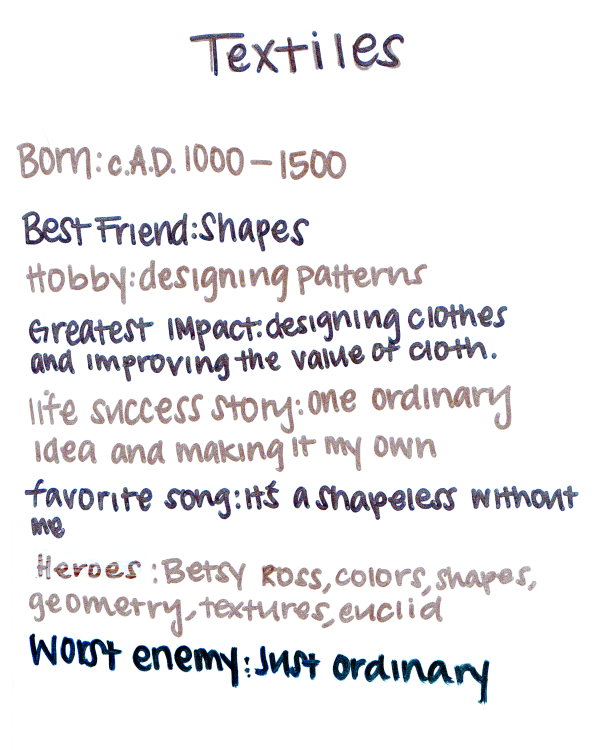 Textiles
Born: c.A.D. 1000 - 1500
Best Friend: Shapes
Hobby: designing patterns
Greatest Impact: designing clothes
and improving the value of cloth.
life success story: one ordinary
Idea and making it my own
favorite song: it's a shapeless without
me
Heroes: Betsy Ross, colors, shapes,
geometry, textures, euclid
Worst enemy: Just ordinary